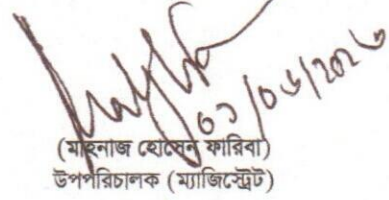 ০১/০৬/২০২৬
(মাহনাজ হোসেন ফারিবা)
উপপরিচালক (ম্যাজিস্ট্রেট)